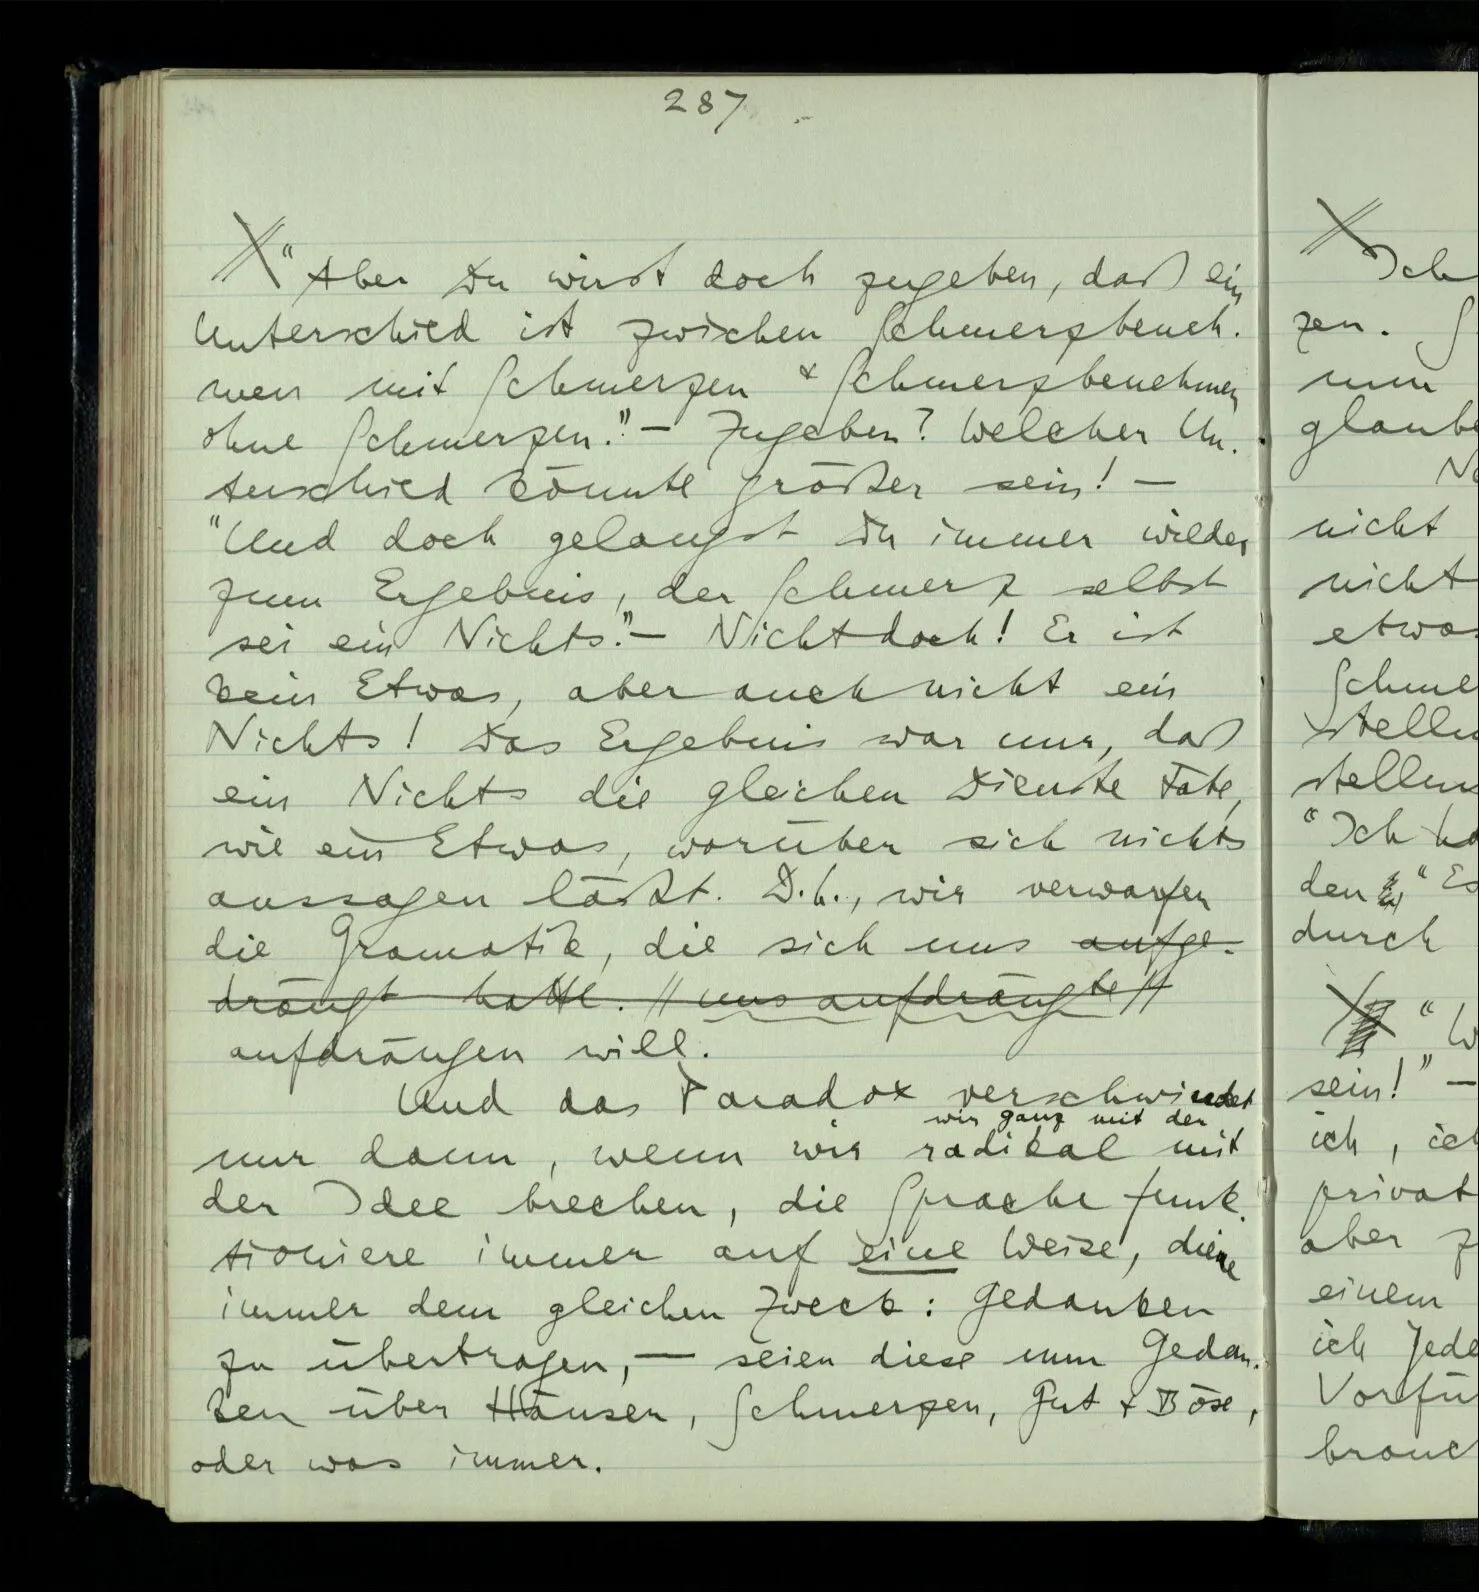 287
"Aber Du wirst doch zugeben, daß ein
Unterschied ist zwischen Schmerzbeneh-
men mit Schmerzen & Schmerzbenehmen
ohne Schmerzen." – Zugeben? Welcher Un-
terschied könnte größer sein! –
"Und doch gelangst Du immer wieder
zum Ergebnis, der Schmerz selbst
sei ein Nichts." – Nicht doch! Er ist
kein Etwas, aber auch nicht ein
Nichts! Das Ergebnis war nur, daß
ein Nichts die gleichen Dienste täte,
wie ein Etwas, worüber sich nichts
aussagen läßt. D.h., wir verwarfen
die Gramatik, die sich uns aufge-
drängt hatte. // uns aufdrängte //
aufdrängen will.
Und das Paradox verschwindet
wir ganz mit der
nur dann, wenn wir radikal mit
der Idee brechen, die Sprache funk-
tioniere immer auf eine Weise, diene
immer dem gleichen Zweck: Gedanken
zu übertragen, – seien diese nun Gedan-
ken über Häuser, Schmerzen, Gut & Böse,
oder was immer.
Ich
zen. S
nun
glaube
nicht
nicht
etwas
Schme
stellu
stellun
"Ich ha
den " Es
durch
" W
sein!" –
ich, ich
privat
aber z
einem
ich jede
Vorfü
brauc